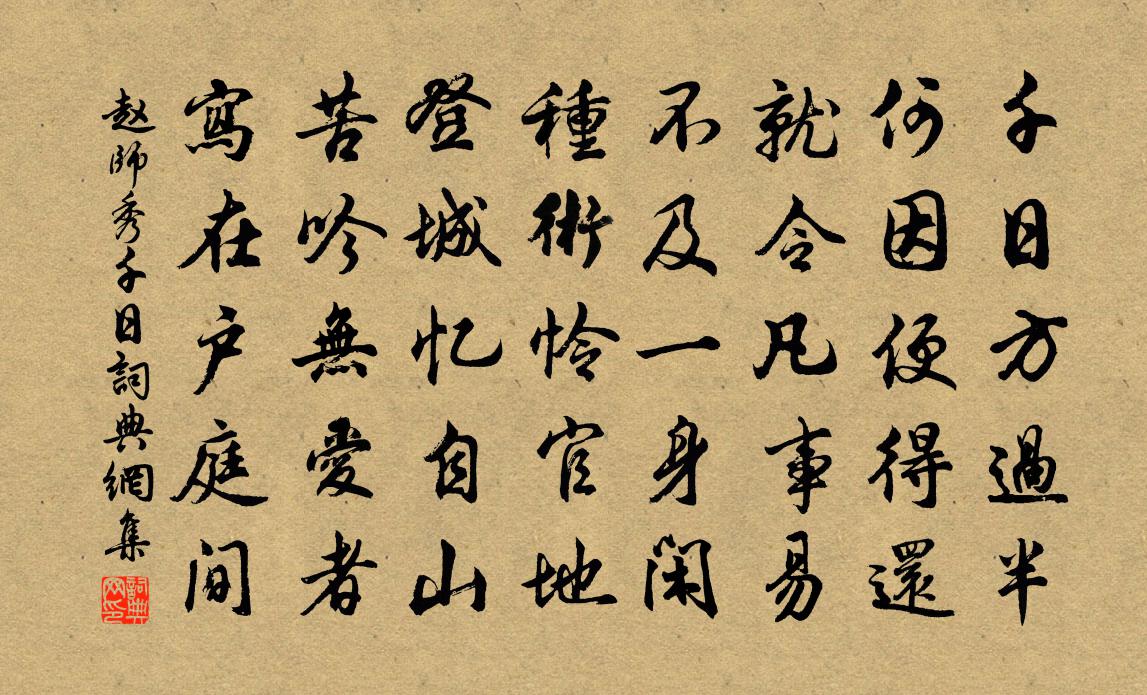 千日方過半
何因便得還
就令凡事易
不及一身閑
種術怜官地
登城忆自山
苦吟無愛者
寫在户庭間
赵師秀千日詞典網集
詞典网印